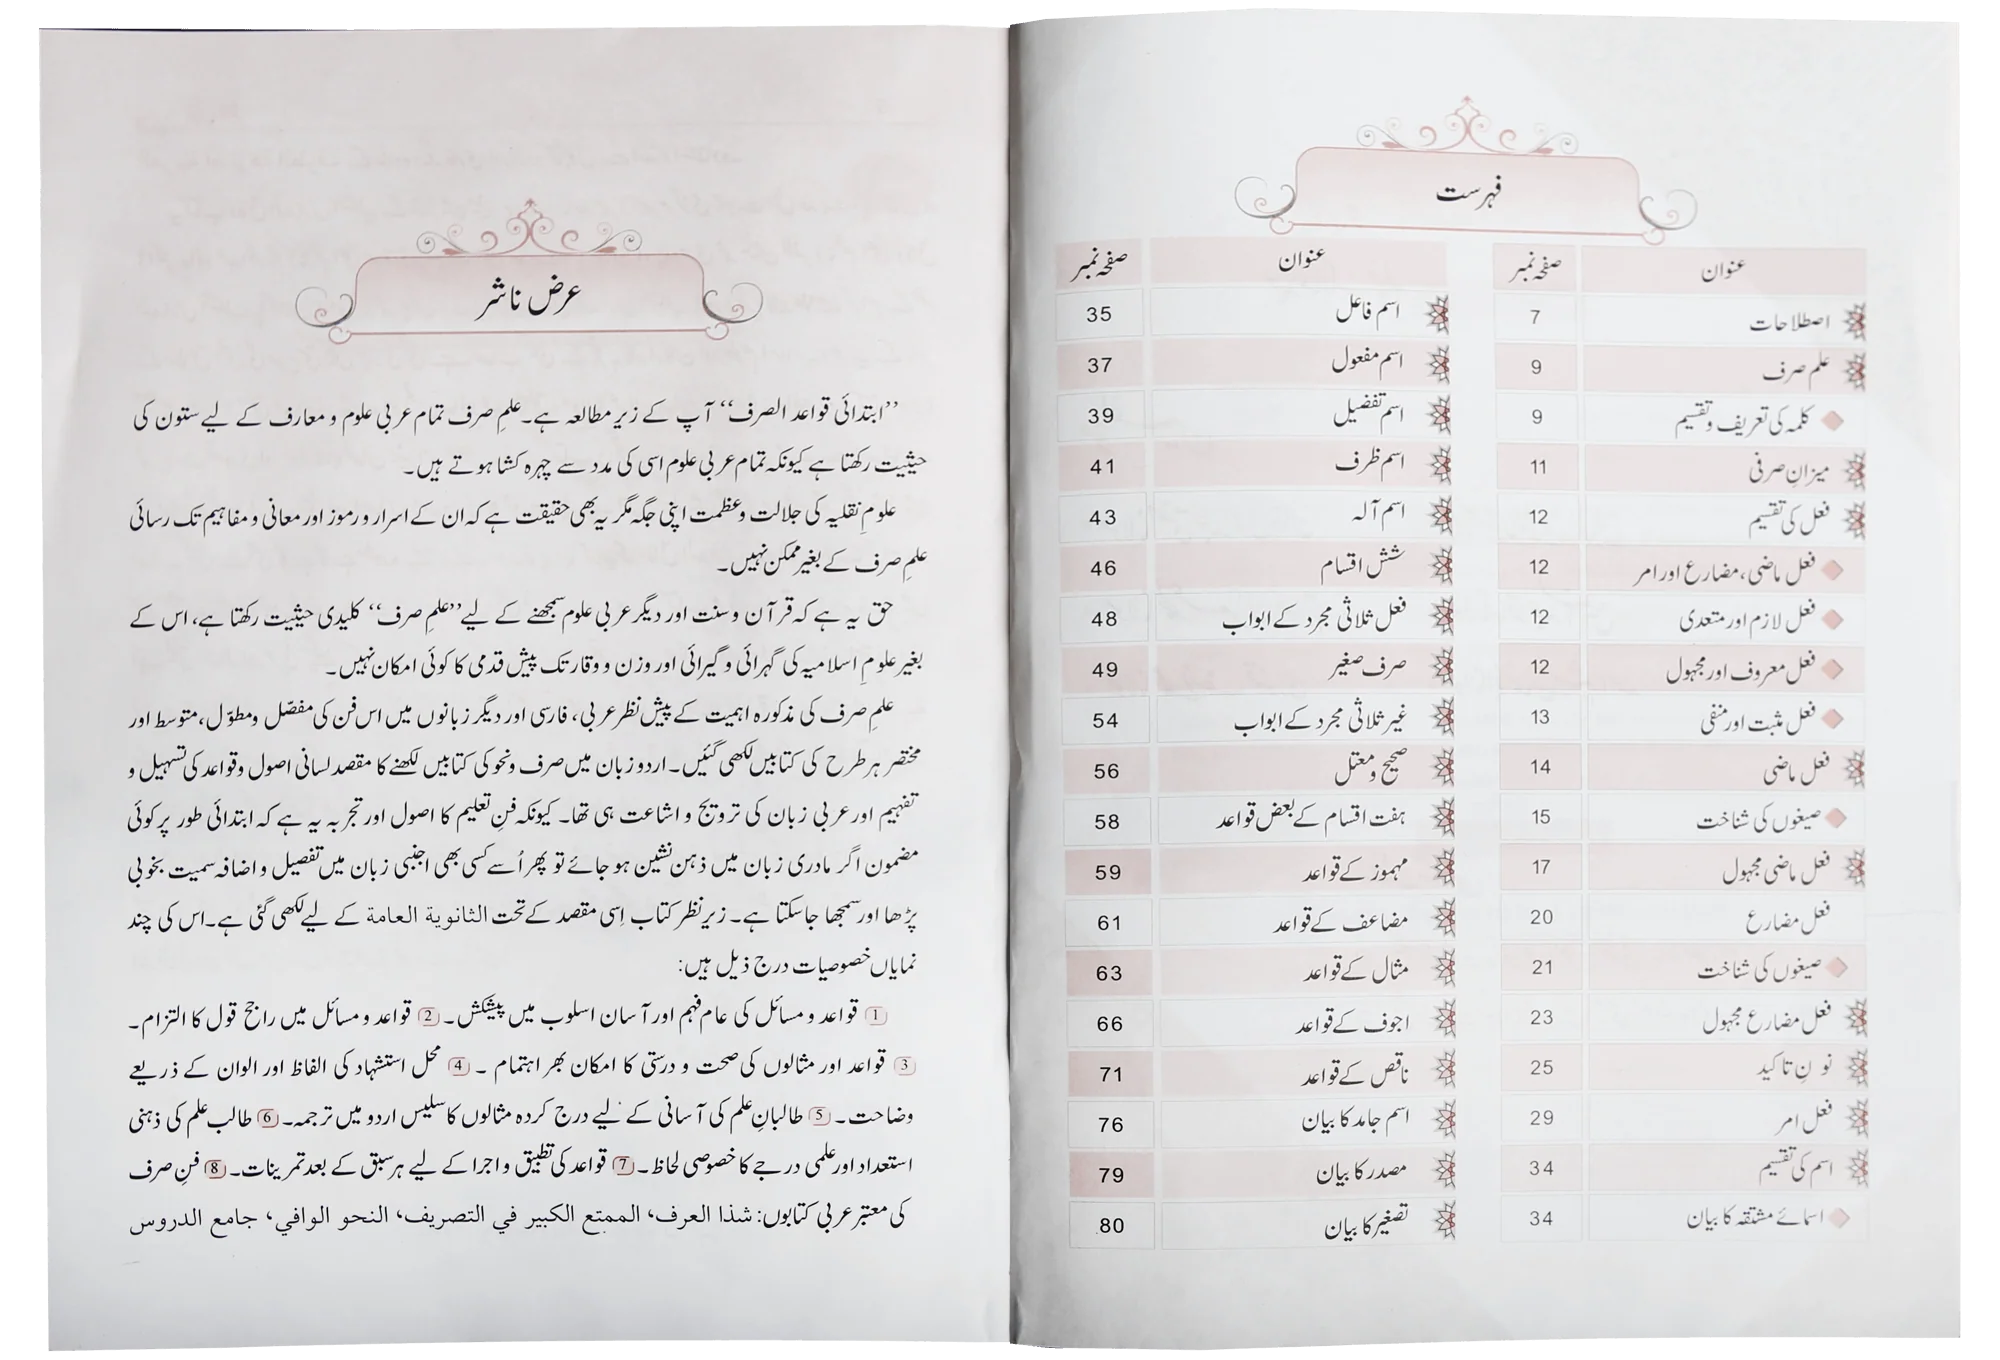 فہرست
عنوان صفحہ نمبر
اصطلاحات 7
علم صرف 9
کلمہ کی تعریف و تقسیم 9
میزانِ صرفی 11
فعل کی تقسیم 12
فعل ماضی، مضارع اور امر 12
فعل لازم اور متعدی 12
فعل معروف اور مجہول 12
فعل مثبت اور منفی 13
فعل ماضی 14
صیغوں کی شناخت 15
فعل ماضی مجہول 17
فعل مضارع 20
صیغوں کی شناخت 21
فعل مضارع مجہول 23
نونِ تاکید 25
فعل امر 29
اسم کی تقسیم 34
اسمائے مشتقہ کا بیان 34
عنوان صفحہ نمبر
اسم فاعل 35
اسم مفعول 37
اسم تفضیل 39
اسم ظرف 41
اسم آلہ 43
شش اقسام 46
فعل ثلاثی مجرد کے ابواب 48
صرف صغیر 49
غیر ثلاثی مجرد کے ابواب 54
صحیح و معتل 56
ہفت اقسام کے بعض قواعد 58
مہموز کے قواعد 59
مضاعف کے قواعد 61
مثال کے قواعد 63
اجوف کے قواعد 66
ناقص کے قواعد 71
اسم جامد کا بیان 76
مصدر کا بیان 79
تصغیر کا بیان 80
عرض ناشر
’’ابتدائی قواعد الصرف‘‘ آپ کے زیر مطالعہ ہے۔ علمِ صرف تمام عربی علوم و معارف کے لیے ستون کی
حیثیت رکھتا ہے کیونکہ تمام عربی علوم اسی کی مدد سے چہرہ کشا ہوتے ہیں۔
علومِ نقلیہ کی جلالت و عظمت اپنی جگہ مگر یہ بھی حقیقت ہے کہ ان کے اسرار و رموز اور معانی و مفاہیم تک رسائی
علمِ صرف کے بغیر ممکن نہیں۔
حق یہ ہے کہ قرآن و سنت اور دیگر عربی علوم سمجھنے کے لیے ’’علمِ صرف‘‘ کلیدی حیثیت رکھتا ہے، اس کے
بغیر علومِ اسلامیہ کی گہرائی و گیرائی اور وزن و وقار تک پیش قدمی کا کوئی امکان نہیں۔
علمِ صرف کی مذکورہ اہمیت کے پیش نظر عربی، فارسی اور دیگر زبانوں میں اس فن کی مفصّل و مطوّل، متوسط اور
مختصر ہر طرح کی کتابیں لکھی گئیں۔ اردو زبان میں صرف و نحو کی کتابیں لکھنے کا مقصد لسانی اصول و قواعد کی تسہیل و
تفہیم اور عربی زبان کی ترویج و اشاعت ہی تھا۔ کیونکہ فنِ تعلیم کا اصول اور تجربہ یہ ہے کہ ابتدائی طور پر کوئی
مضمون اگر مادری زبان میں ذہن نشین ہو جائے تو پھر اُسے کسی بھی اجنبی زبان میں تفصیل و اضافہ سمیت بخوبی
پڑھا اور سمجھا جاسکتا ہے۔ زیر نظر کتاب اِسی مقصد کے تحت الثانوية العامة کے لیے لکھی گئی ہے۔ اس کی چند
نمایاں خصوصیات درج ذیل ہیں:
1 قواعد و مسائل کی عام فہم اور آسان اسلوب میں پیشکش۔ 2 قواعد و مسائل میں راجح قول کا التزام۔
3 قواعد اور مثالوں کی صحت و درستی کا امکان بھر اہتمام ۔ 4 محل استشہاد کی الفاظ اور الوان کے ذریعے
وضاحت۔ 5 طالبانِ علم کی آسانی کے لیے درج کردہ مثالوں کا سلیس اردو میں ترجمہ۔ 6 طالب علم کی ذہنی
استعداد اور علمی درجے کا خصوصی لحاظ۔ 7 قواعد کی تطبیق و اجرا کے لیے ہر سبق کے بعد تمرینات۔ 8 فنِ صرف
کی معتبر عربی کتابوں: شذا العرف، الممتع الكبير في التصريف، النحو الوافي، جامع الدروس